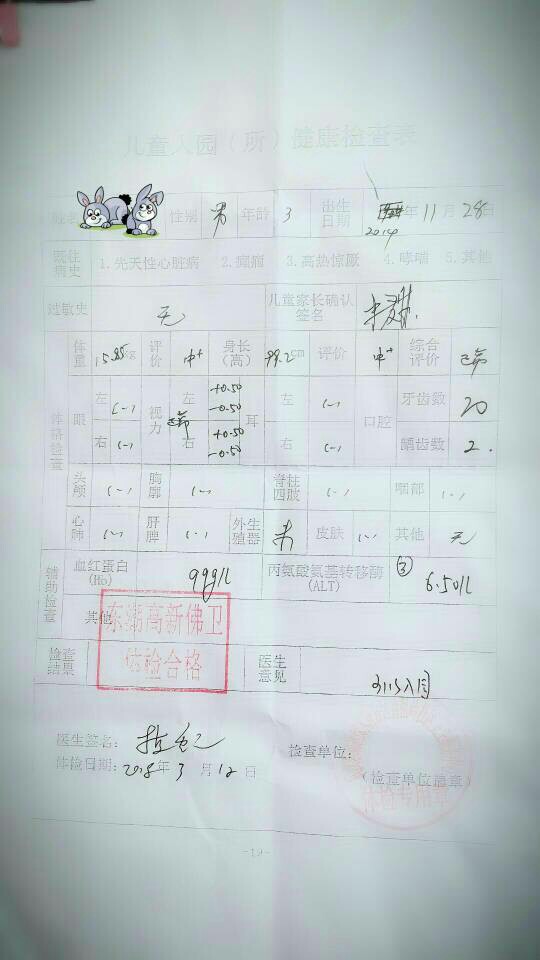 儿童入园（所）健康检查表
性别 男 年龄 3 出生日期 2014 年 11 月 28 日
既往病史 1.先天性心脏病 2.癫痫 3.高热惊厥 4.哮喘 5.其他
过敏史 无 儿童家长确认签名
体格检查 体重 15.85kg 评价 中+ 身长(高) 99.2cm 评价 中+ 综合评价
眼 左 (-) 视力 左 +0.50 -0.50 耳 左 (-) 口腔 牙齿数 20
右 (-) 右 +0.50 -0.50 右 (-) 龋齿数 2
头颅 (-) 胸廓 (-) 脊柱四肢 (-) 咽部 (-)
心肺 (-) 肝脾 (-) 外生殖器 未 皮肤 (-) 其他 无
辅助检查 血红蛋白(Hb) 99g/L 丙氨酸氨基转移酶(ALT) 6.5U/L
其他
东湖高新佛卫
体检合格
检查结果 医生意见 可以入园
医生签名： 检查单位：
体检日期：2018年 3 月 12 日 (检查单位盖章)
体检专用章
-19-